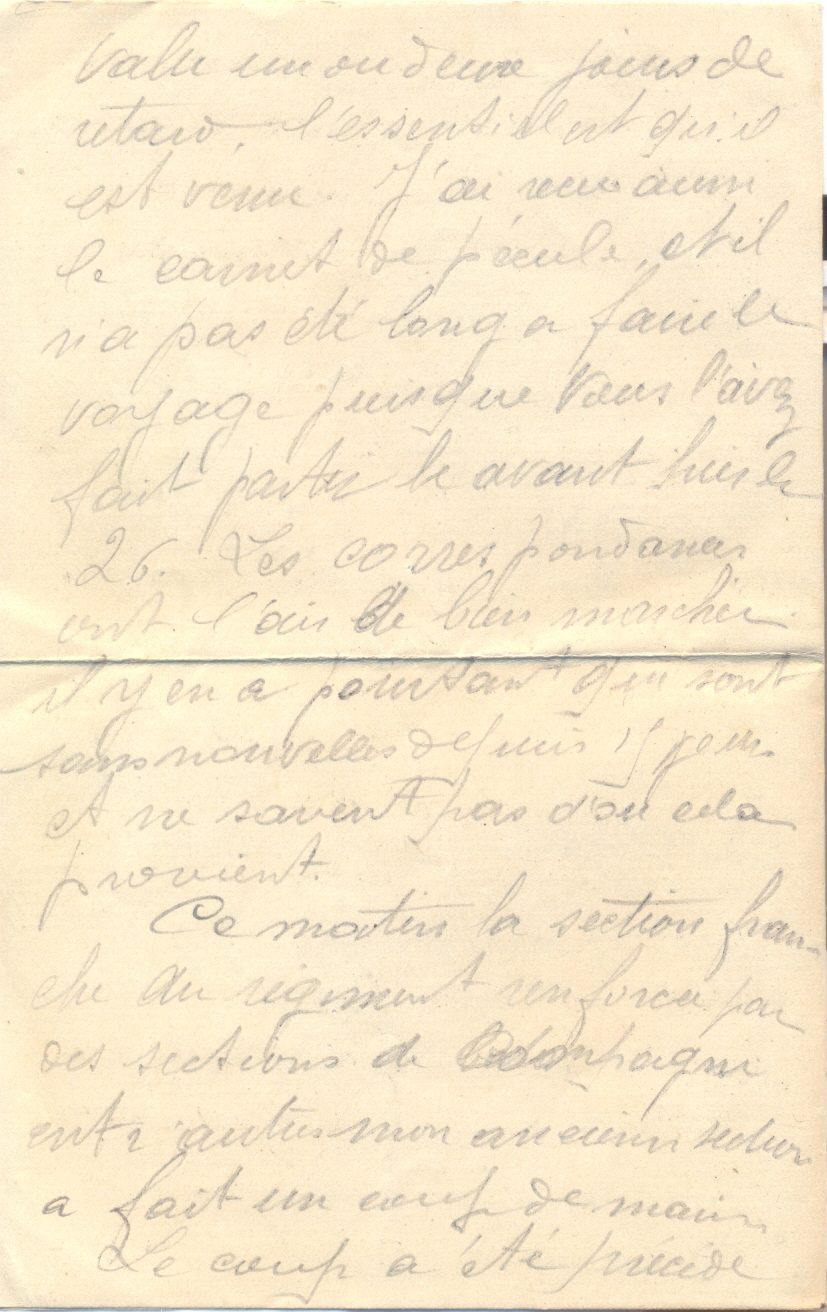 valu un ou deux jours de
retard, l'essentiel est qu'il
est venu. J'ai reçu aussi
le carnet de pécule, et il
n'a pas été long a faire le
voyage puisque vous l'avez
fait partir le avant hier le
26. Les correspondances
ont l'air de bien marcher
il y en a pourtant qui sont
sans nouvelles depuis 15 jours
et ne savent pas d'où cela
provient.
Ce matin la section fran-
che du régiment renforcée par
des sections de Compagnie
entr'autres mon ancienne section
a fait un coup de main.
Le coup a été précédé